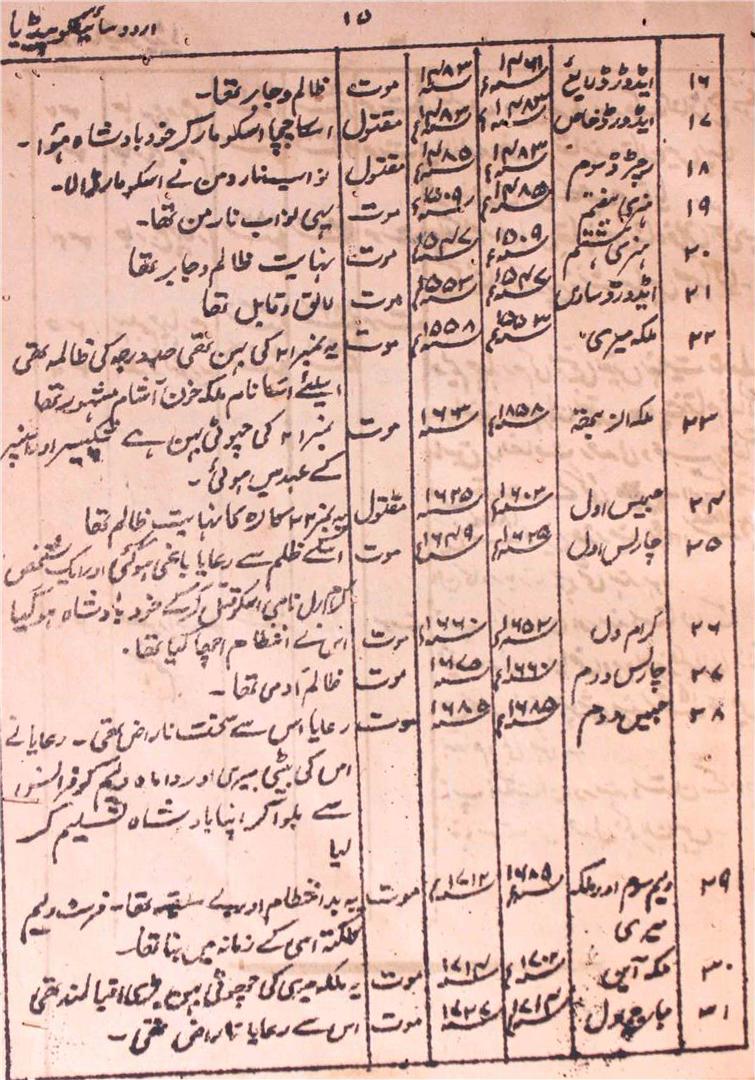 اردو سائیکلوپیڈیا ۱۵
۱۶ ایڈورڈ رابع ۱۴۶۱ء ۱۴۸۳ء موت ظالم و جابر تھا۔
۱۷ ایڈورڈ خامس ۱۴۸۳ء ۱۴۸۳ء مقتول اسکا چچا اسکو مار کر خود بادشاہ ہؤا۔
۱۸ رچرڈ سوم ۱۴۸۳ء ۱۴۸۵ء مقتول نواب نے اسکو مار ڈالا۔
۱۹ ہنری ہفتم ۱۴۸۵ء ۱۵۰۹ء موت یہی نواب تھا۔
۲۰ ہنری ہشتم ۱۵۰۹ء ۱۵۴۷ء موت نہایت ظالم و جابر تھا
۲۱ ایڈورڈ سادس ۱۵۴۷ء ۱۵۵۳ء موت لائق و قابل تھا
۲۲ ملکہ میری ۱۵۵۳ء ۱۵۵۸ء موت یہ نمبر ۲۱ کی بہن تھی حد درجہ کی ظالمہ تھی
اسلئے اسکا نام ملکہ خون آشام مشہور تھا
۲۳ ملکہ الزبتھ ۱۸۵۸ء ۱۶۰۳ء موت نمبر ۲۱ کی چھوٹی بہن ہے شکسپیر اور
کے عہد میں ہوئی۔
۲۴ جیمس اول ۱۶۰۳ء ۱۶۲۵ء مقتول یہ نمبر ۲۳ کا نہایت ظالم تھا
۲۵ چارلس اول ۱۶۲۵ء ۱۶۴۹ء موت اسکے ظلم سے رعایا باغی ہوگئی اور ایک شخص
نامی اسکو قتل کرکے خود بادشاہ ہوگیا
۲۶ کرام ول ۱۶۵۲ء ۱۶۶۰ء موت اس نے انتظام اچھا کیا تھا۔
۲۷ چارلس دوم ۱۶۶۰ء ۱۶۸۵ء موت ظالم آدمی تھا۔
۲۸ جیمس دوم ۱۶۸۵ء ۱۶۸۵ء موت رعایا اس سے سخت ناراض تھی۔ رعایا نے
اس کی بیٹی میری اور داماد ولیم کو
سے بلوا کر اپنا بادشاہ تسلیم کر
لیا
۲۹ ولیم سوم اور ملکہ ۱۶۸۹ء ۱۷۱۲ء موت یہ بد انتظام اور تھا۔ فورٹ ولیم
میری کلکتہ اسی کے زمانہ میں بنا تھا۔
۳۰ ملکہ آین ۱۷۰۲ء ۱۷۱۴ء موت یہ ملکہ میری کی چھوٹی بہن بڑی اقبالمند تھی
۳۱ جارج اول ۱۷۱۴ء ۱۷۲۷ء موت اس سے رعایا ناراض تھی۔